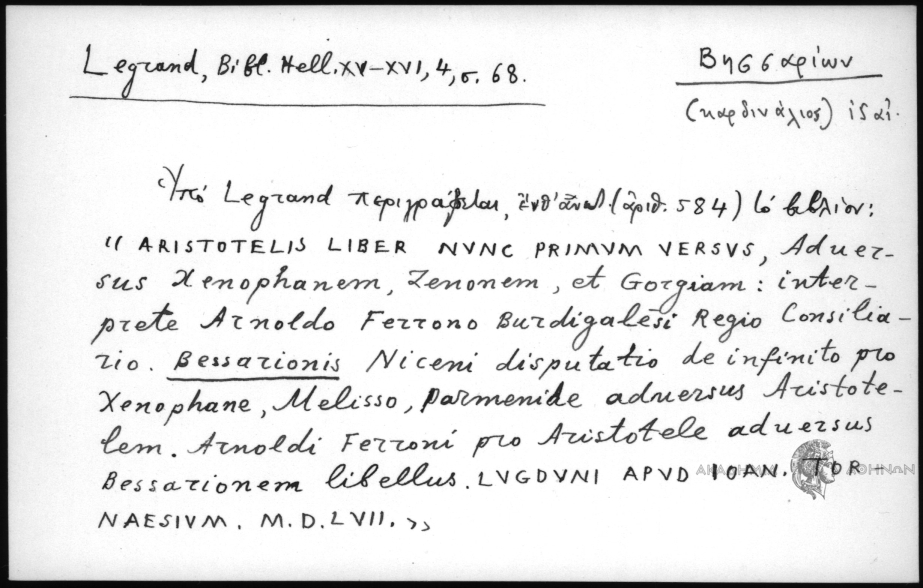 Legrand, Bibl. Hell. XV–XVI, 4, σ. 68.
Βησσαρίων
(καρδινάλιος)
Ὑπό Legrand περιγράφεται, ἔνθ' ἄνωτ. (ἀριθ. 584) τό βιβλίον:
“ ARISTOTELIS LIBER NVNC PRIMVM VERSVS, Aduer-
sus Xenophanem, Zenonem, et Gorgiam: inter-
prete Arnoldo Ferrono Burdigalēsi Regio Consilia-
rio. Bessarionis Niceni disputatio de infinito pro
Xenophane, Melisso, Parmenide aduersus Aristote-
lem. Arnoldi Ferroni pro Aristotele aduersus
Bessarionem libellus. LVGDVNI APVD IOAN. TOR-
NAESIVM. M.D.LVII. ”
ΑΚΑΔΗΜΙΑ ΑΘΗΝΩΝ